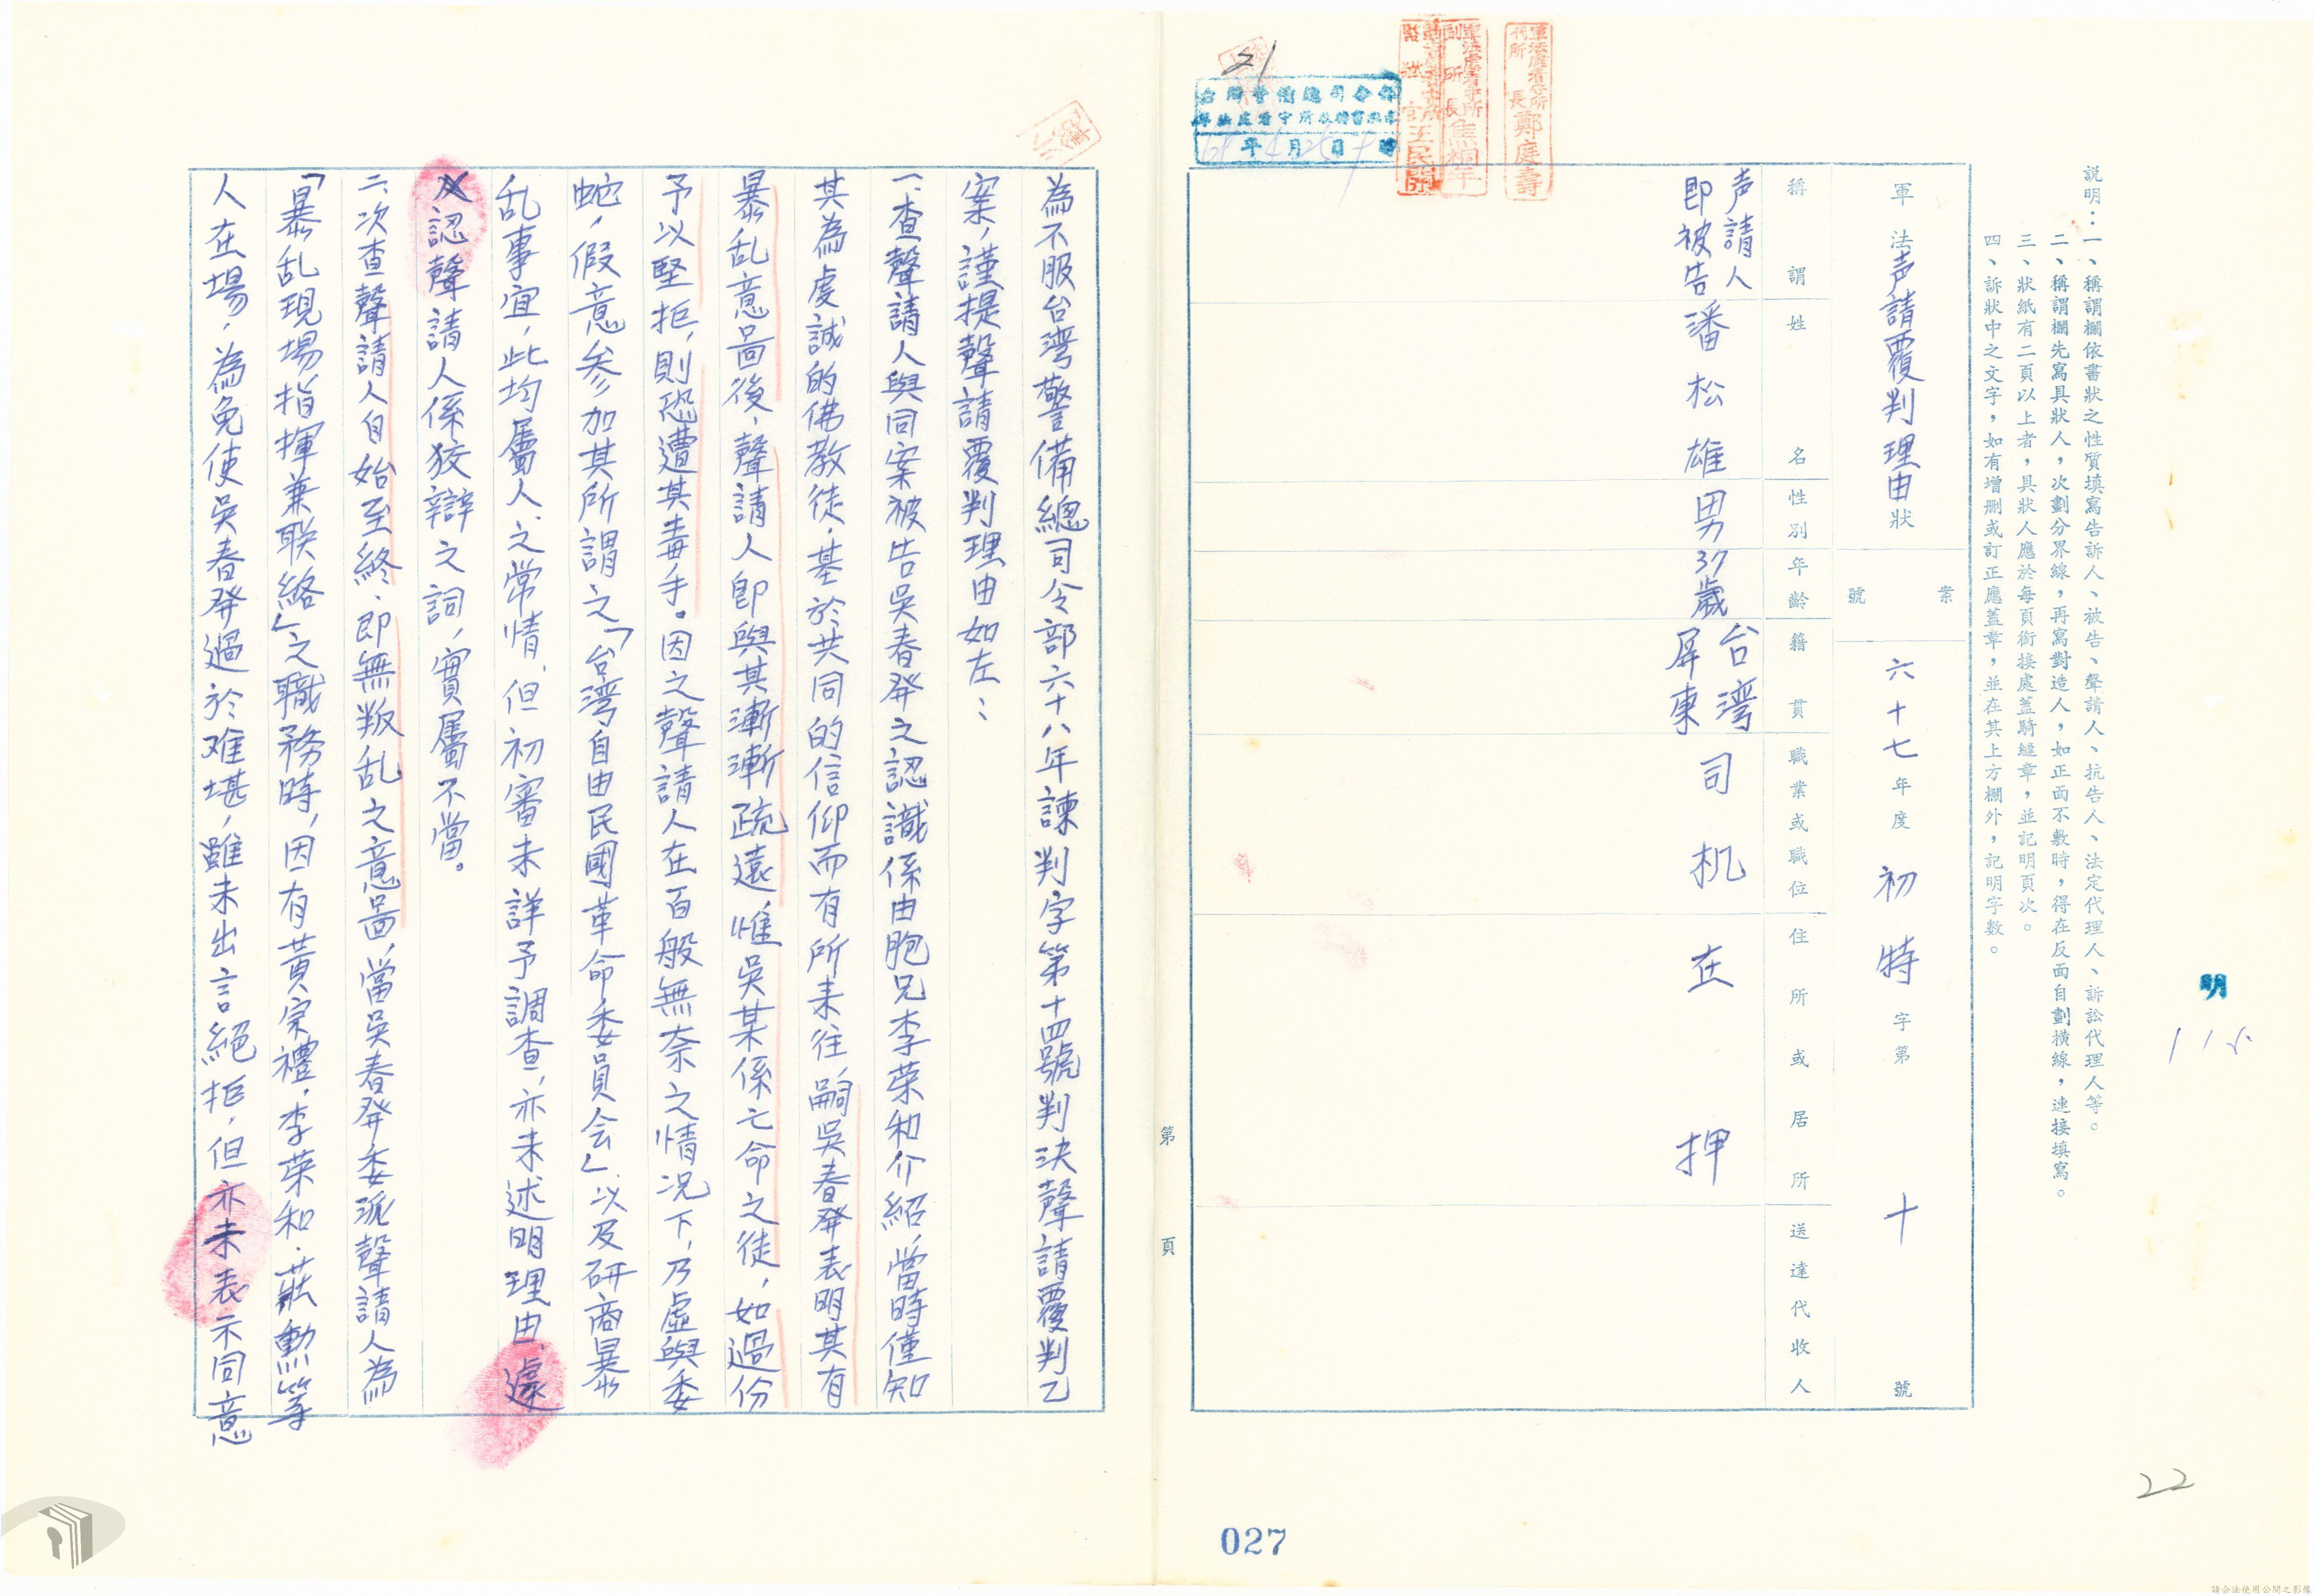 説明：一、稱謂欄依書狀之性質填寫告訴人、被告、聲請人、抗告人、法定代理人、訴訟代理人等。
二、稱謂欄先寫具狀人，次劃分界線，再寫對造人，如正面不敷時，得在反面自劃橫線，連接填寫。
三、狀紙有二頁以上者，具狀人應於每頁銜接處蓋騎縫章，並記明頁次。
四、訴狀中之文字，如有增刪或訂正應蓋章，並在其上方欄外，記明字數。
明
22
軍法声請覆判理由狀
案號
六十七年度初特字第十號
稱謂
姓名
性別
年齡
籍貫
職業或職位
住所或居所
送達代收人
声請人
即被告
潘松雄
男
37歲
台湾
屏東
司机
在押
軍法處看守所
代所長鄭度壽
軍法處看守所
副所長焦桐年
21
年月日時
027
第頁
為不服台湾警備總司令部六十八年諫判字第十四號判決聲請覆判乙
案，謹提聲請覆判理由如左：
一、查聲請人與同案被告吳春発之認識係由胞兄李荣和介紹，當時僅知
其為虔誠的佛教徒，基於共同的信仰而有所来往，嗣吳春発表明其有
暴乱意啚後，聲請人即與其漸漸疏遠，惟吳某係亡命之徒，如過份
予以堅拒，則恐遭其毒手。因之聲請人在百般無奈之情況下，乃虛與委
蛇，假意参加其所謂之「台湾自由民國革命委員会」以及研商暴
乱事宜，此均屬人之常情，但初審未詳予調查，亦未述明理由，遽
認聲請人係狡辯之詞，實屬不當。
二、次查聲請人自始至終，即無叛乱之意啚，當吳春発委派聲請人為
「暴乱現場指揮兼联絡」之職務時，因有黃宗禮，李荣和，莊勳等
人在場，為免使吳春発過於难堪，雖未出言絕拒，但亦未表示同意
請合法使用公開之影像